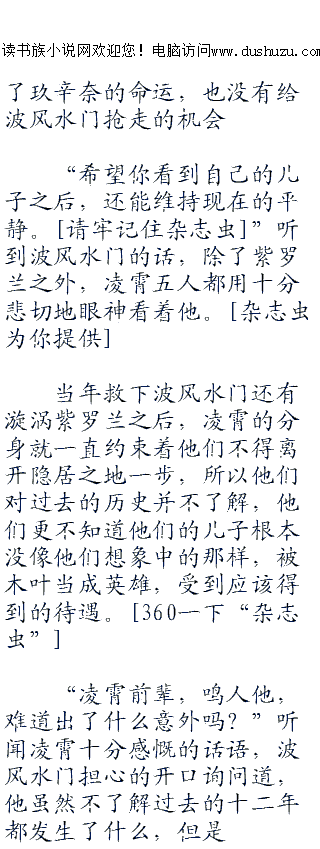 读书族小说网欢迎您！电脑访问www.dushuzu.com
了玖辛奈的命运，也没有给
波风水门抢走的机会
“希望你看到自己的儿
子之后，还能维持现在的平
静。[请牢记住杂志虫]”听
到波风水门的话，除了紫罗
兰之外，凌霄五人都用十分
悲切地眼神看着他。[杂志虫
为你提供]
当年救下波风水门还有
漩涡紫罗兰之后，凌霄的分
身就一直约束着他们不得离
开隐居之地一步，所以他们
对过去的历史并不了解，他
们更不知道他们的儿子根本
没像他们想象中的那样，被
木叶当成英雄，受到应该得
到的待遇。[360一下“杂志
虫”]
“凌霄前辈，鸣人他，
难道出了什么意外吗？”听
闻凌霄十分感慨的话语，波
风水门担心的开口询问道，
他虽然不了解过去的十二年
都发生了什么，但是